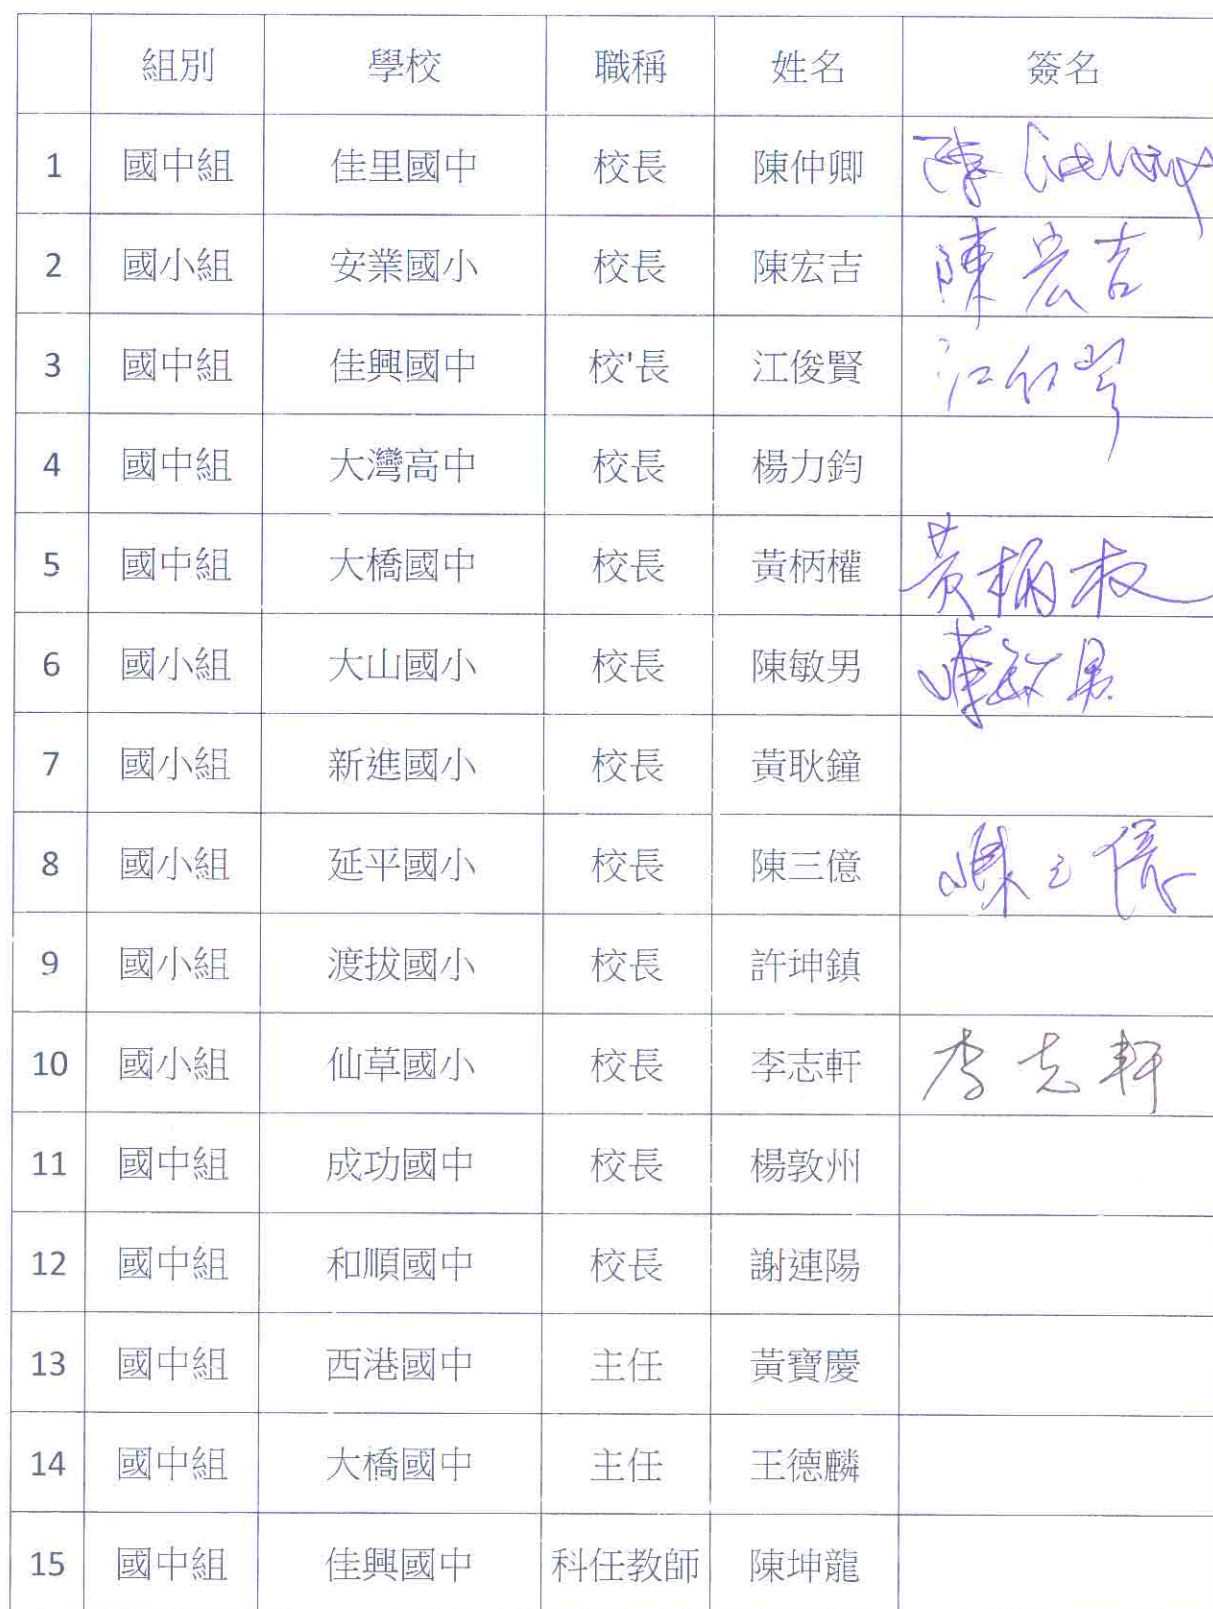 組別 學校 職稱 姓名 簽名
1 國中組 佳里國中 校長 陳仲卿 陳
2 國小組 安業國小 校長 陳宏吉 陳宏吉
3 國中組 佳興國中 校'長 江俊賢 江
4 國中組 大灣高中 校長 楊力鈞
5 國中組 大橋國中 校長 黃柄權 黃柄权
6 國小組 大山國小 校長 陳敏男 陳敏男
7 國小組 新進國小 校長 黃耿鐘
8 國小組 延平國小 校長 陳三億 陳三億
9 國小組 渡拔國小 校長 許坤鎮
10 國小組 仙草國小 校長 李志軒 李志軒
11 國中組 成功國中 校長 楊敦州
12 國中組 和順國中 校長 謝連陽
13 國中組 西港國中 主任 黃寶慶
14 國中組 大橋國中 主任 王德麟
15 國中組 佳興國中 科任教師 陳坤龍